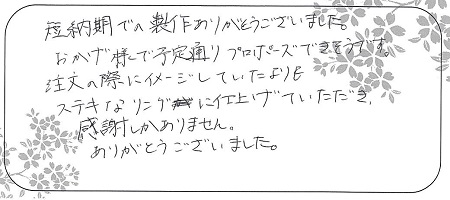 短納期での製作ありがとうございました。
おかげ様で予定通りプロポーズできそうです。
注文の際にイメージしていたよりも
ステキなリングに仕上げていただき、
感謝しかありません。
ありがとうございました。